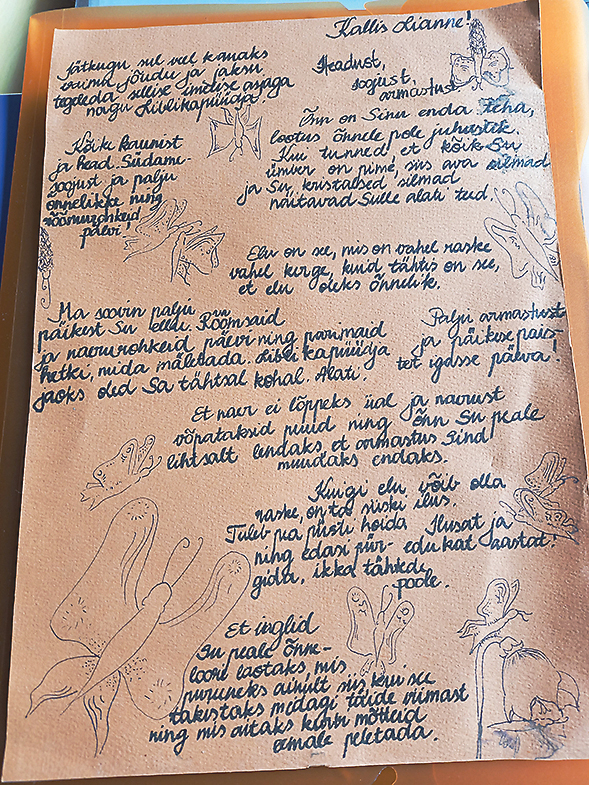 Kallis Lianne!
Jätkugu sul veel kauaks
vaimu jõudu ja jaksu
tegeleda sellise imelise asjaga
nagu Liblikapüüdja.
Headust,
soojust,
armastust
Õnn on Sinu enda teha,
lootus õnnele pole juhuslik.
Kui tunned et kõik Su
ümber on pime, siis ava silmad
ja Su kristalsed silmad
näitavad Sulle alati teed.
Kõike kaunist
ja head. Südame-
soojust ja palju
õnnelikke ning
rõõmurohkeid
päevi!
Elu on see, mis on vahel raske
vahel kerge, kuid tähtis on see,
et elu oleks õnnelik.
Ma soovin palju
päikest Su ellu. Rõõmsaid
ja naerurohkeid päevi ning parimaid
hetki, mida mäletada. Liblikapüüdja
jaoks oled Sa tähtsal kohal. Alati.
Palju armastust
ja päikese pais-
tet igasse päeva!
Et naer ei lõppeks ial ja naerust
võpataksid puud ning õnn Su peale
lihtsalt lendaks et armastus Sind
muudaks endaks.
Kuigi elu võib olla
raske, on ta siiski ilus.
Tuleb pea püsti hoida
ning edasi pür-
gida, ikka tähtede
poole.
Ilusat ja
edukat aastat!
Et inglid
Su peale õnne-
loori laotaks mis
puruneks ainult siis kui see
takistaks midagi täide viimast
ning mis aitaks kurbi mõtteid
eemale peletada.